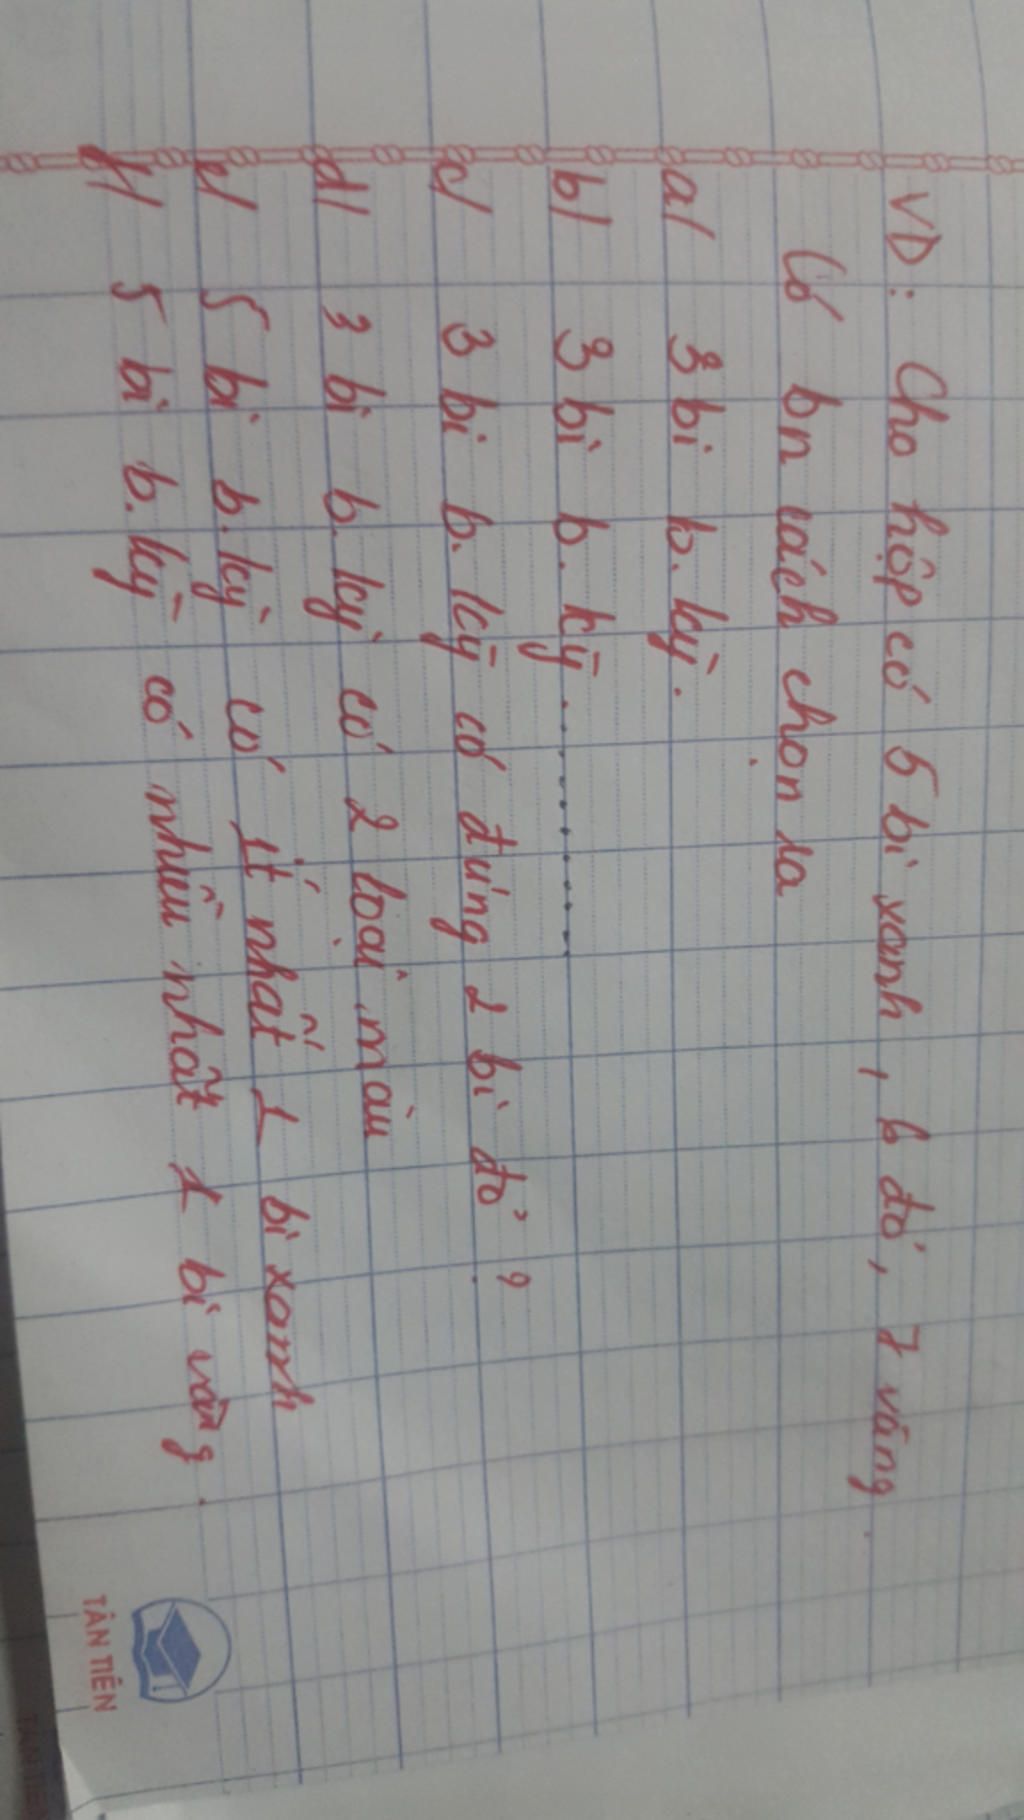 VD: Cho hộp có 5 bi xanh, 6 đỏ, 7 vàng.
Có bn cách chọn ra
a/ 3 bi b.kỳ.
b/ 3 bi b.kỳ...........
c/ 3 bi b.kỳ có đúng 2 bi đỏ?
d/ 3 bi b.kỳ có 2 loại màu
e/ 5 bi b.kỳ có ít nhất 1 bi xanh
f/ 5 bi b.kỳ có nhiều nhất 1 bi vàng.
TÂN TIẾN